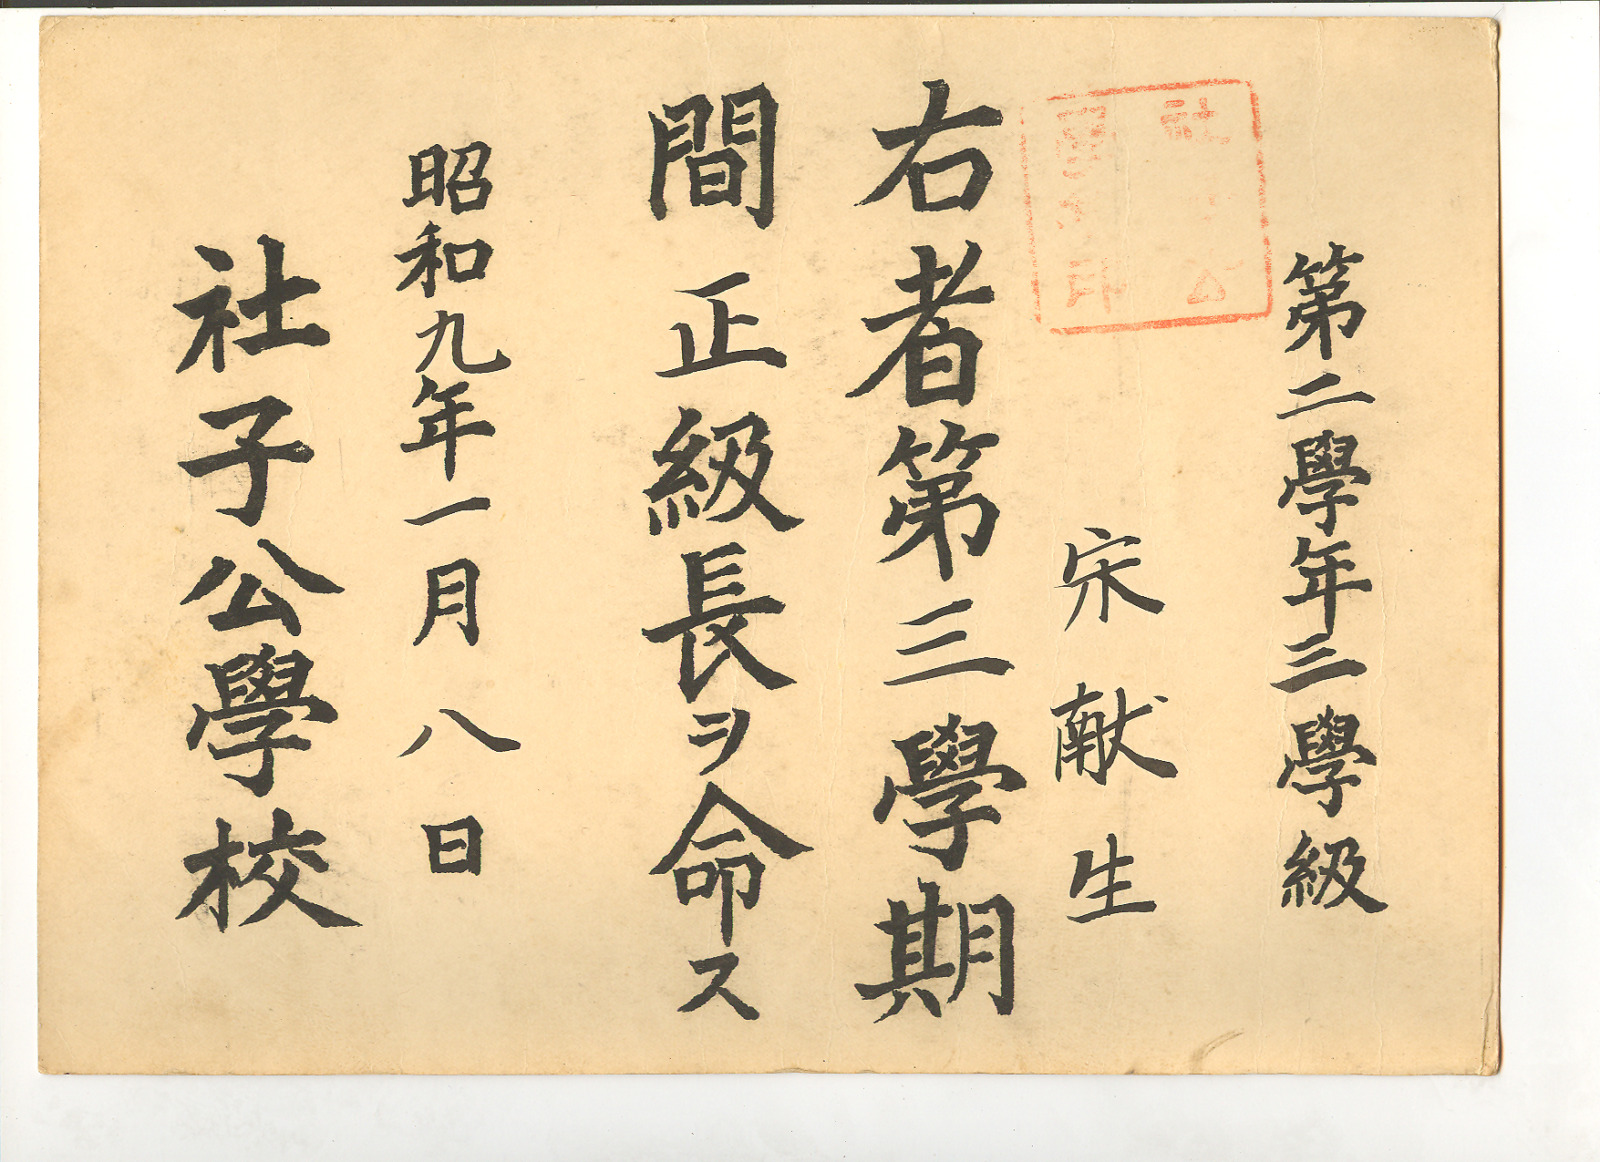 第二學年三學級
宋献生
右者第三學期
間正級長ヲ命ス
昭和九年一月八日
社子公學校